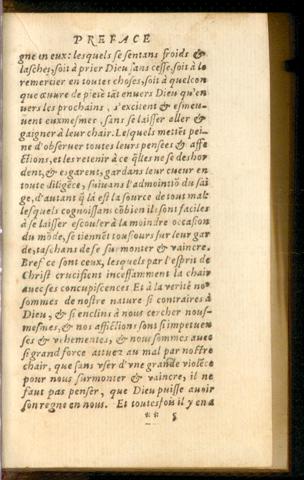 PREFACE
gne en eux: lesquels se sentans froids &
lasches, soit à prier Dieu sans cesse, soit à le
remercier en toutes choses, soit à quelcon
que œuure de pieté tãt enuers Dieu qu'en
uers les prochains, s'excitent & esmeu-
uent euxmesmes, sans se laisser aller &
gaigner à leur chair. Lesquels mettẽt pei-
ne d'obseruer toutes leurs pensees & affe
ctions, et les retenir à ce q̃lles ne se deshor
dent, & esgarent, gardans leur cueur en
toute diligẽce, suiuans l'admonitiõ du sai
ge, d'autant q̃ là est la source de tout mal:
lesquels cognoissans cõbien ils sont faciles
à se laisser escouler à la moindre occasion
du mõde, se tiennẽt tousiours sur leur gar
de, taschans de se surmonter & vaincre.
Bref ce sont ceux, lesquels par l'esprit de
Christ crucifient incessamment la chair
auec ses concupiscences Et à la verité no9
sommes de nostre nature si contraires à
Dieu, & si enclins à nous cercher nous-
mesmes, & nos affections sont si impetueu
ses & vehementes, & nous sommes auec
si grand force attirez au mal par nostre
chair, que sans vser d'vne grande violẽce
pour nous surmonter & vaincre, il ne
faut pas penser, que Dieu puisse auoir
son regne en nous. Et toutesfois il y en a
** 5